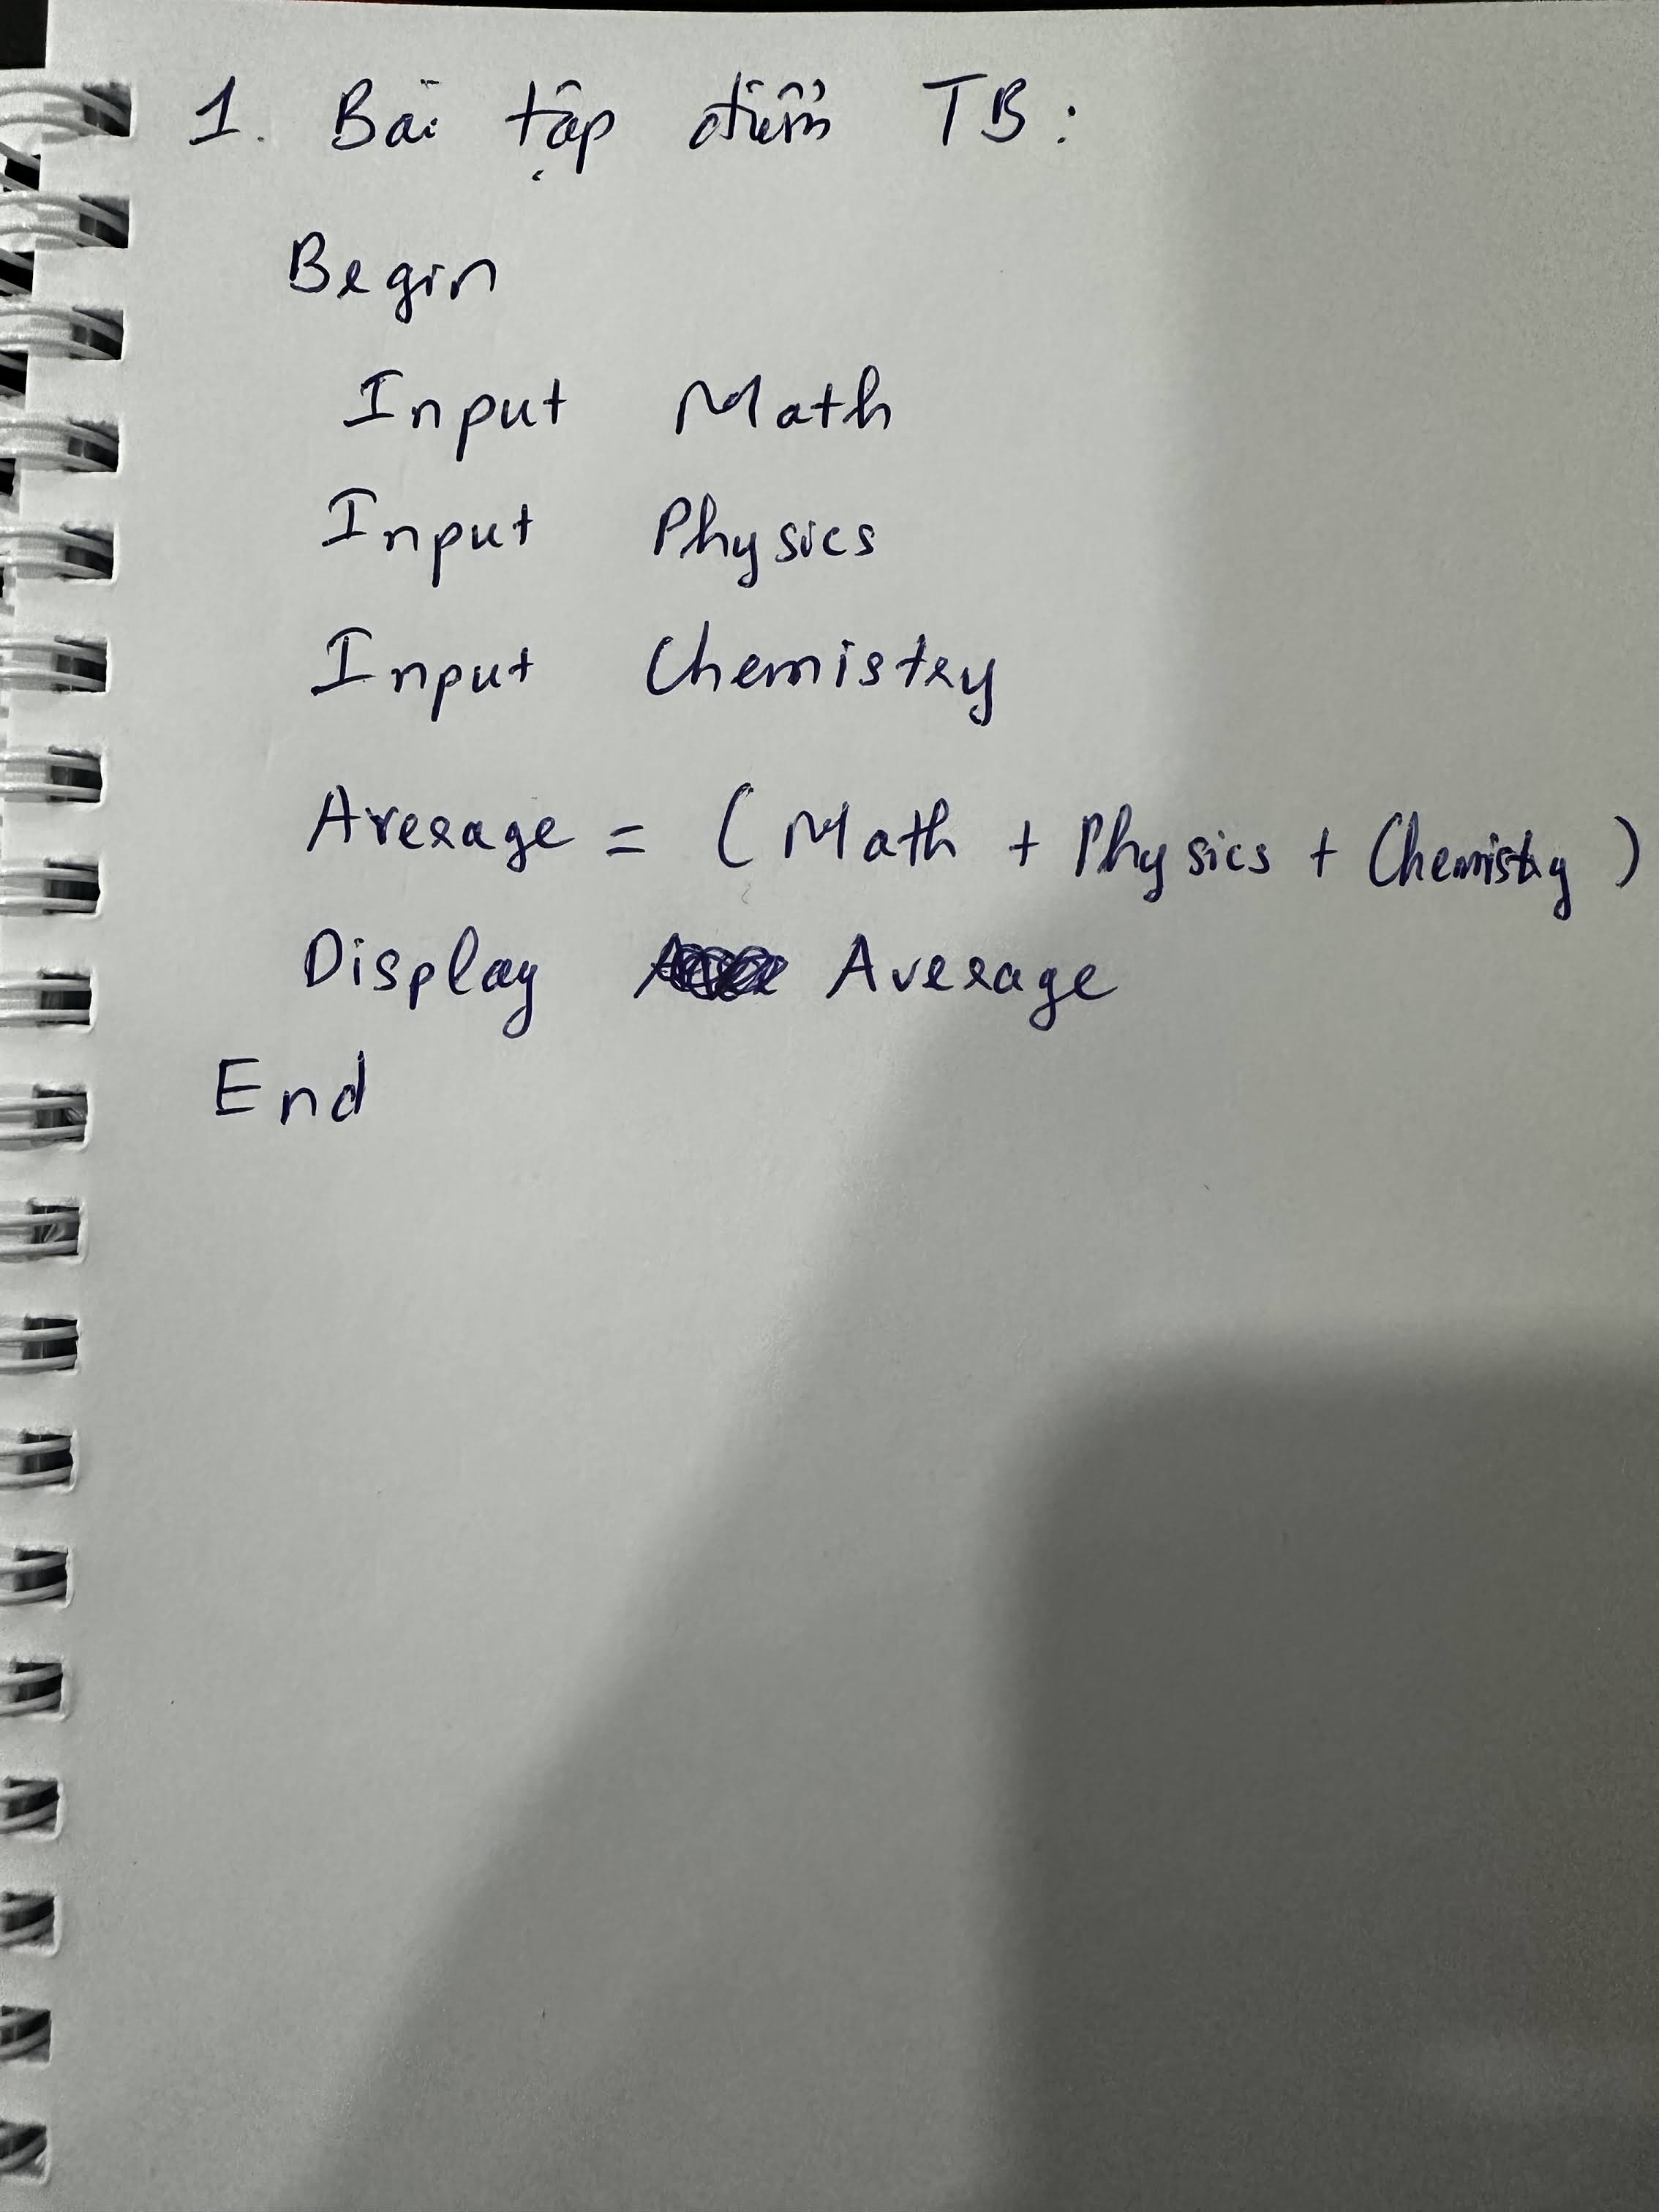 1. Bài tập điểm TB:
Begin
Input Math
Input Physics
Input Chemistry
Average = ( Math + Physics + Chemistry )
Display Average
End